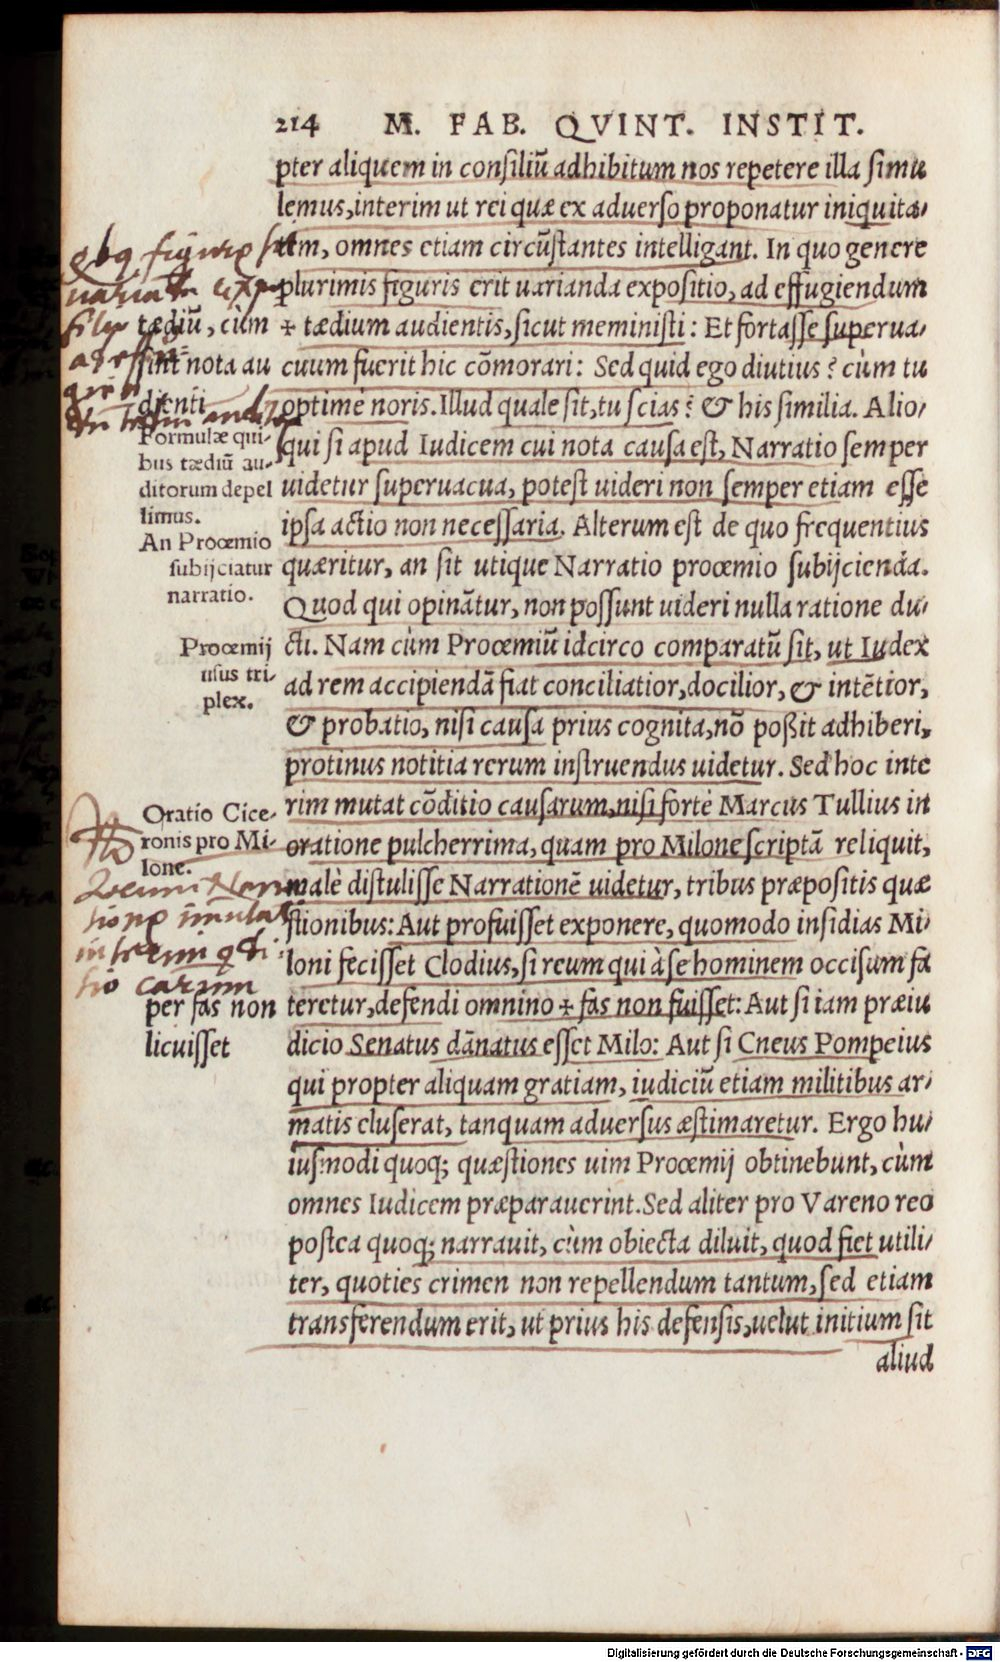 214 M. FAB. QVINT. INSTIT.
pter aliquem in consiliũ adhibitum nos repetere illa simu
lemus, interim ut rei quæ ex aduerso proponatur iniquita-
tem, omnes etiam circũstantes intelligant. In quo genere
plurimis figuris erit uarianda expositio, ad effugiendum
✢ tædium audientis, sicut meministi: Et fortasse superua-
cuum fuerit hic cõmorari: Sed quid ego diutius? cùm tu
optime noris. Illud quale sit, tu scias? & his similia. Alio-
qui si apud Iudicem cui nota causa est, Narratio semper
uidetur superuacua, potest uideri non semper etiam esse
ipsa actio non necessaria. Alterum est de quo frequentius
quæritur, an sit utique Narratio proœmio subijcienda.
Quod qui opinãtur, non possunt uideri nulla ratione du-
cti. Nam cùm Proœmiũ idcirco comparatũ sit, ut Iudex
ad rem accipiendã fiat conciliatior, docilior, & intẽtior,
& probatio, nisi causa prius cognita, nõ poßit adhiberi,
protinus notitia rerum instruendus uidetur. Sed hoc inte
rim mutat cõditio causarum, nisi fortè Marcus Tullius in
oratione pulcherrima, quam pro Milone scriptã reliquit,
malè distulisse Narrationẽ uidetur, tribus præpositis quæ
stionibus: Aut profuisset exponere, quomodo insidias Mi-
loni fecisset Clodius, si reum qui à se hominem occisum fa
teretur, defendi omnino ✢ fas non fuisset: Aut si iam præiu
dicio Senatus dãnatus esset Milo: Aut si Cneus Pompeius
qui propter aliquam gratiam, iudiciũ etiam militibus ar-
matis cluserat, tanquam aduersus æstimaretur. Ergo hu-
iusmodi quoq; quæstiones uim Proœmij obtinebunt, cùm
omnes Iudicem præparauerint. Sed aliter pro Vareno reo
postea quoq; narrauit, cùm obiecta diluit, quod fiet utili-
ter, quoties crimen non repellendum tantum, sed etiam
transferendum erit, ut prius his defensis, uelut initium sit
aliud
tædiũ, cùm
sint nota au
dienti
Formulæ qui-
bus tædiũ au-
ditorum depel
limus.
An Proœmio
subijciatur
narratio.
Proœmij
usus tri-
plex.
Oratio Cice-
ronis pro Mi-
lone.
per fas non
licuisset
Digitalisierung gefördert durch die Deutsche Forschungsgemeinschaft - DFG